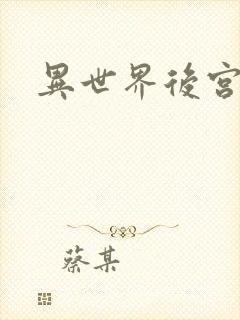 異世界後宮
蔡某